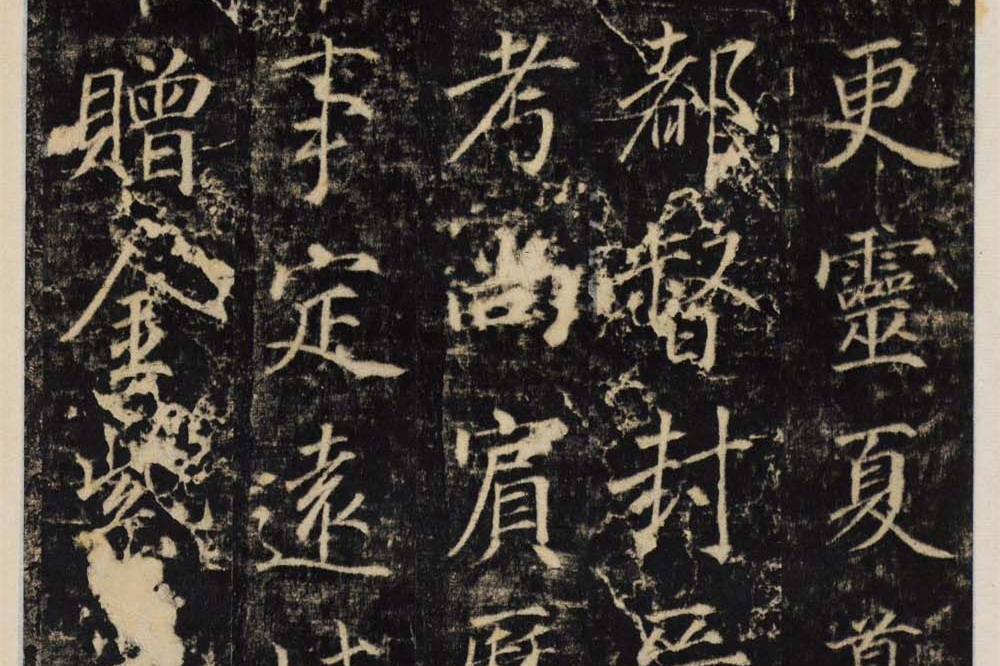 更靈夏
都督封
考尚賓
事定遠
贈金紫